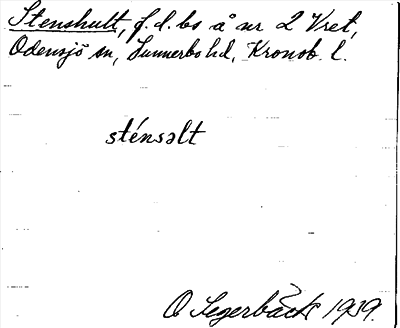 Stenshult, f.d. bs å nr 2 Vret,
Odensjö sn, Sunnerbo hd, Kronob. l.
sténsəlt
O Segerbäck 1939.